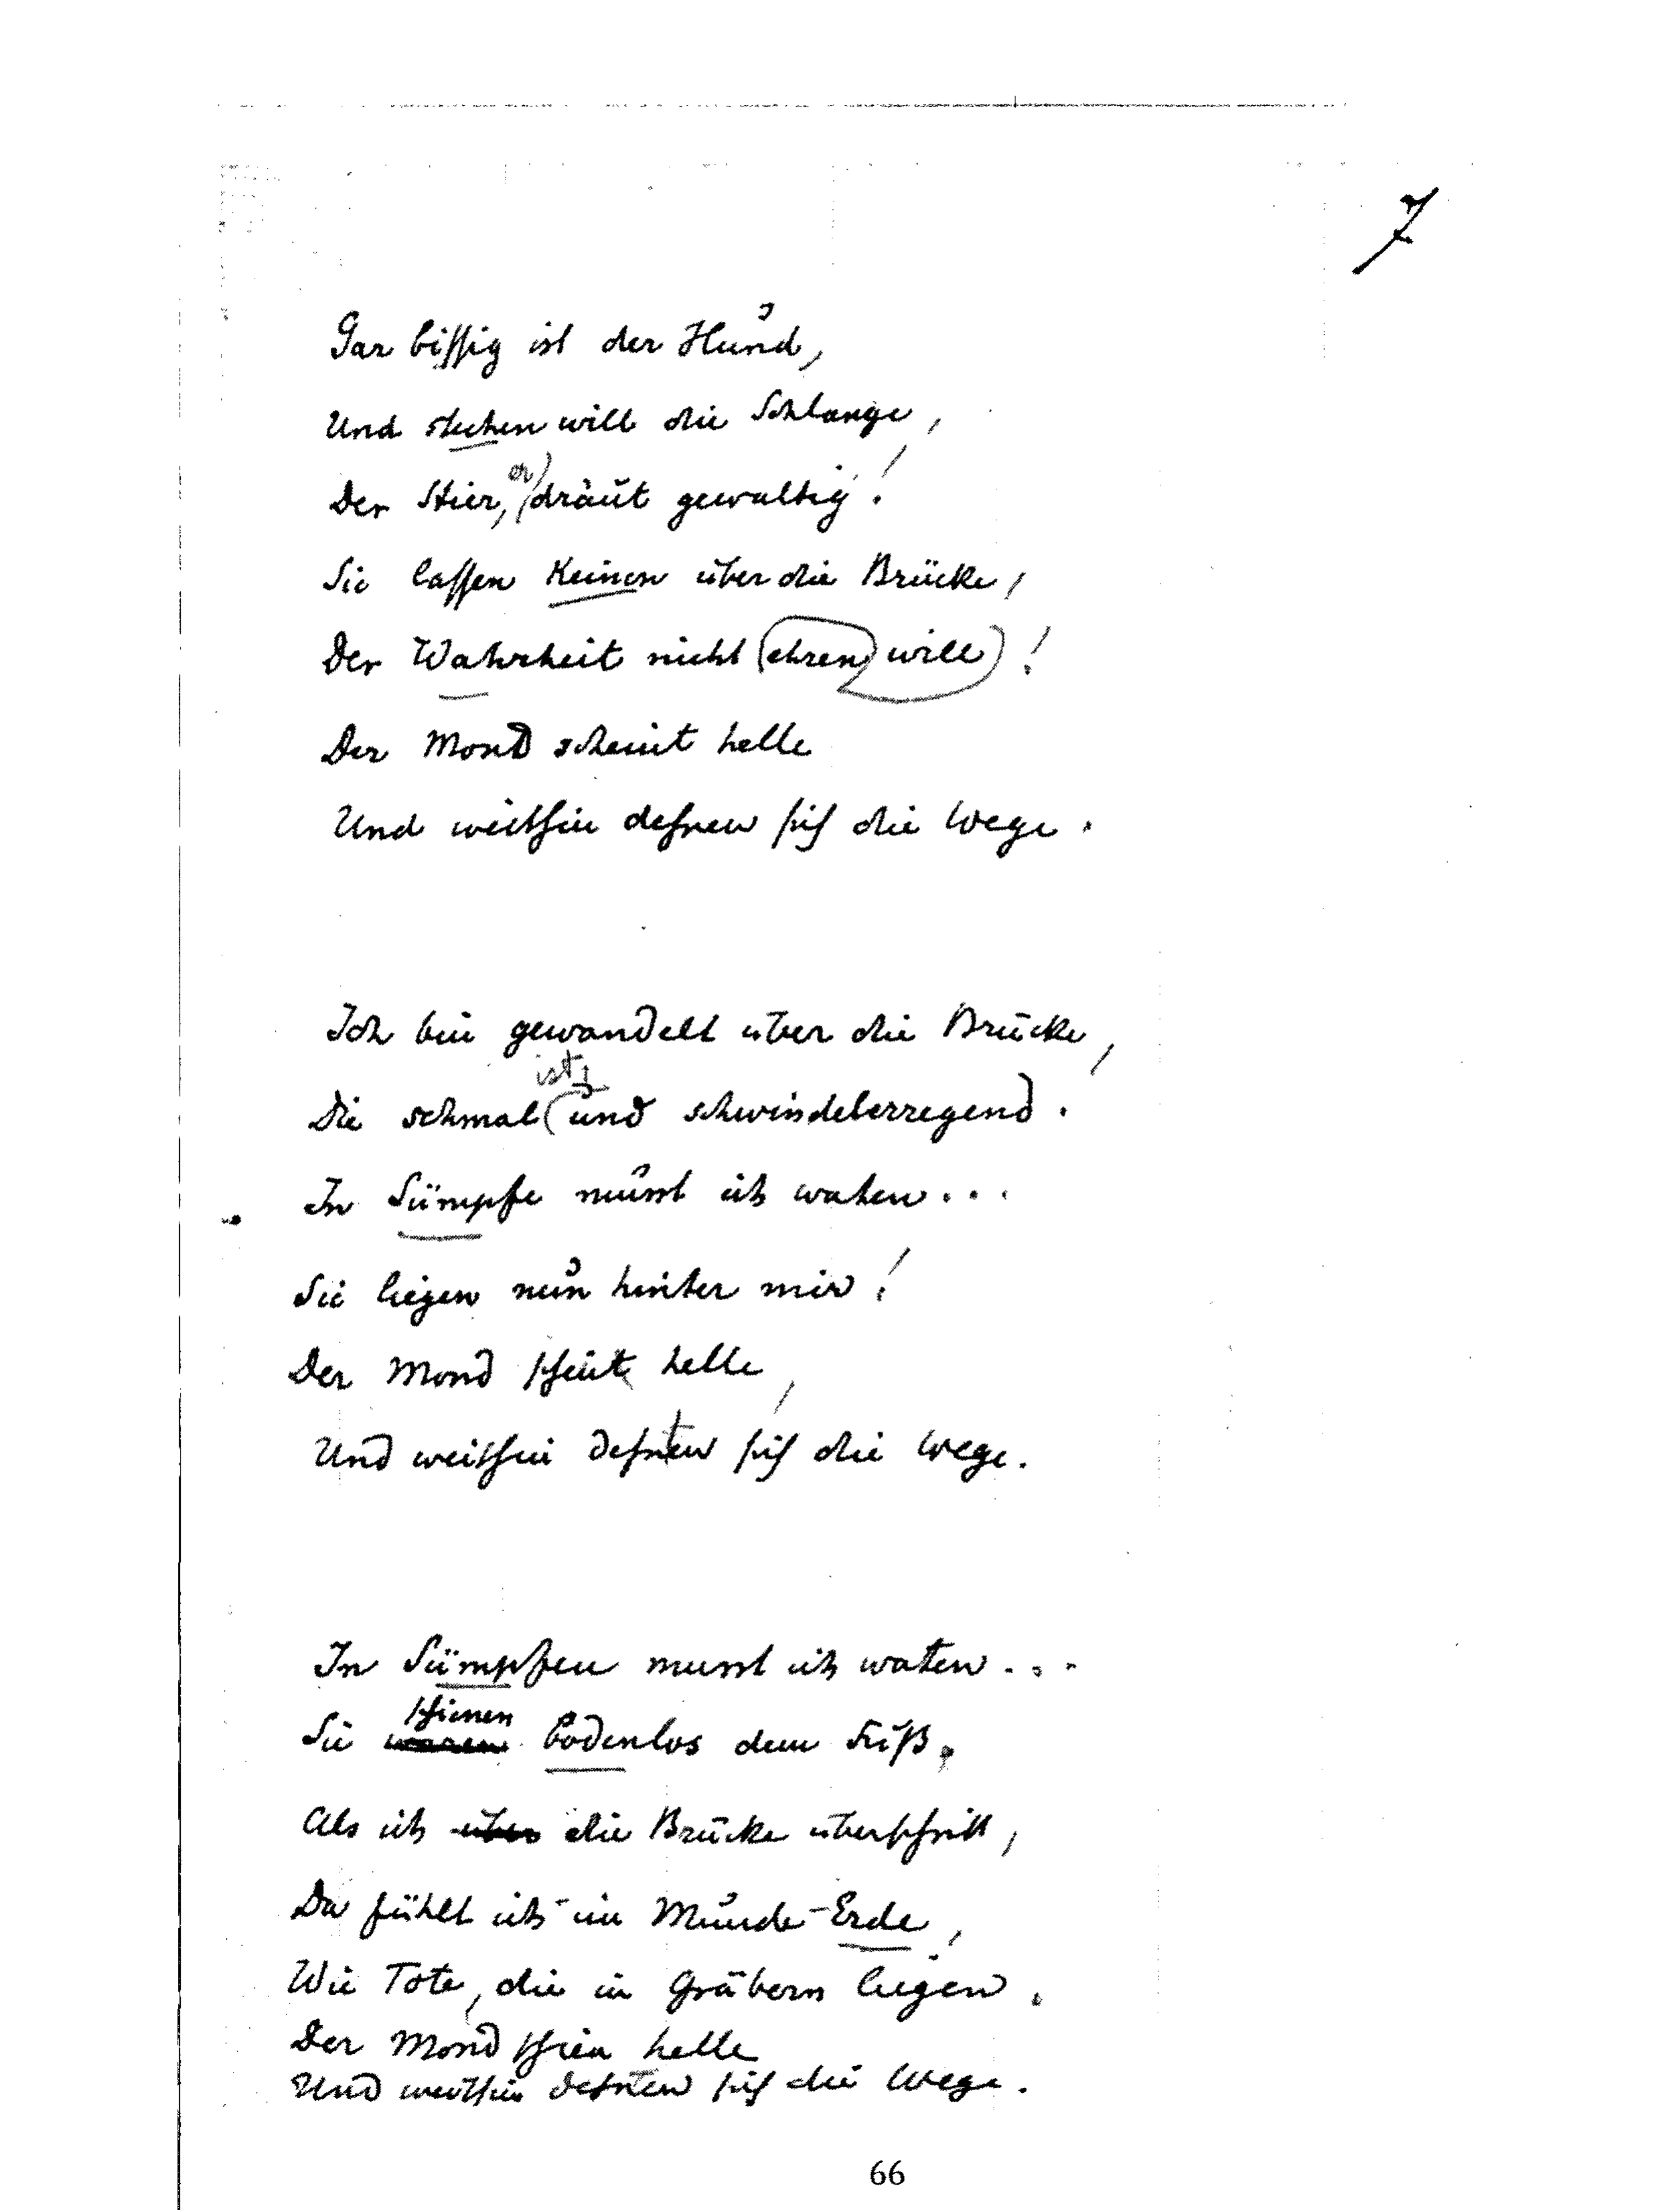 7
Gar bissig ist der Hund,
Und stechen will die Schlange,
er
Der Stier, dräut gewaltig!
Sie lassen Keinen über die Brücke,
Der Wahrheit nicht (ehren) will)!
Der Mond scheint helle
Und weithin dehnen sich die Wege.
Ich bin gewandelt über die Brücke,
ist,
Die schmal (und schwindelerregend).
In Sümpfe musst ich waten...
Sie liegen nun hinter mir!
Der Mond scheint helle,
Und weithin dehnten sich die Wege.
In Sümpfen musst ich waten...
schienen
Sie waren bodenlos dem Fuß,
Als ich über die Brücke überschritt,
Da fühlt ich im Munde Erde!
Wie Tote, die in Gräbern liegen.
Der Mond schien helle
Und weithin dehnten sich die Wege.
66